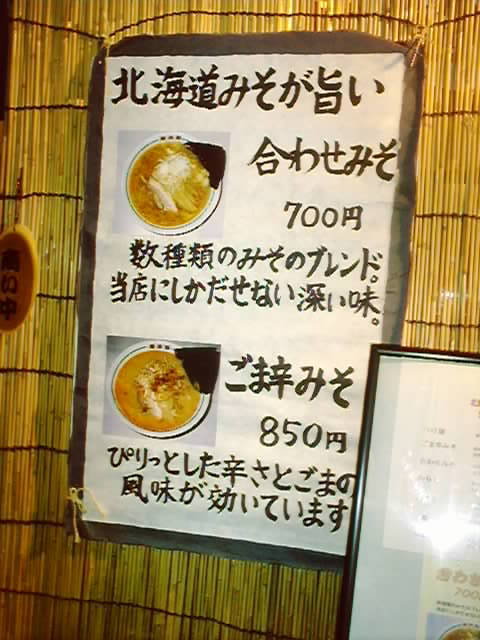 北海道みそが旨い
合わせみそ
700円
数種類のみそのブレンド。
当店にしかだせない深い味。
ごま辛みそ
850円
ぴりっとした辛さとごまの
風味が効いています
い中
合わせ
700